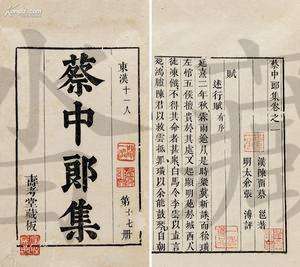 東漢十一人
蔡中郎集
第十七册
壽考堂藏板
蔡中郎集卷之一
漢陳留蔡 邕著
明太倉張 溥評
賦
述行賦有序
延熹二年秋霖雨逾月是時梁冀新誅而徐璜
左悺五侯擅貴於其處又起顯明苑於城西人
徒凍餓不得其命者甚衆白馬令李雲以直言
死鴻臚陳君以救雲抵罪璜以余能鼓琴自朝